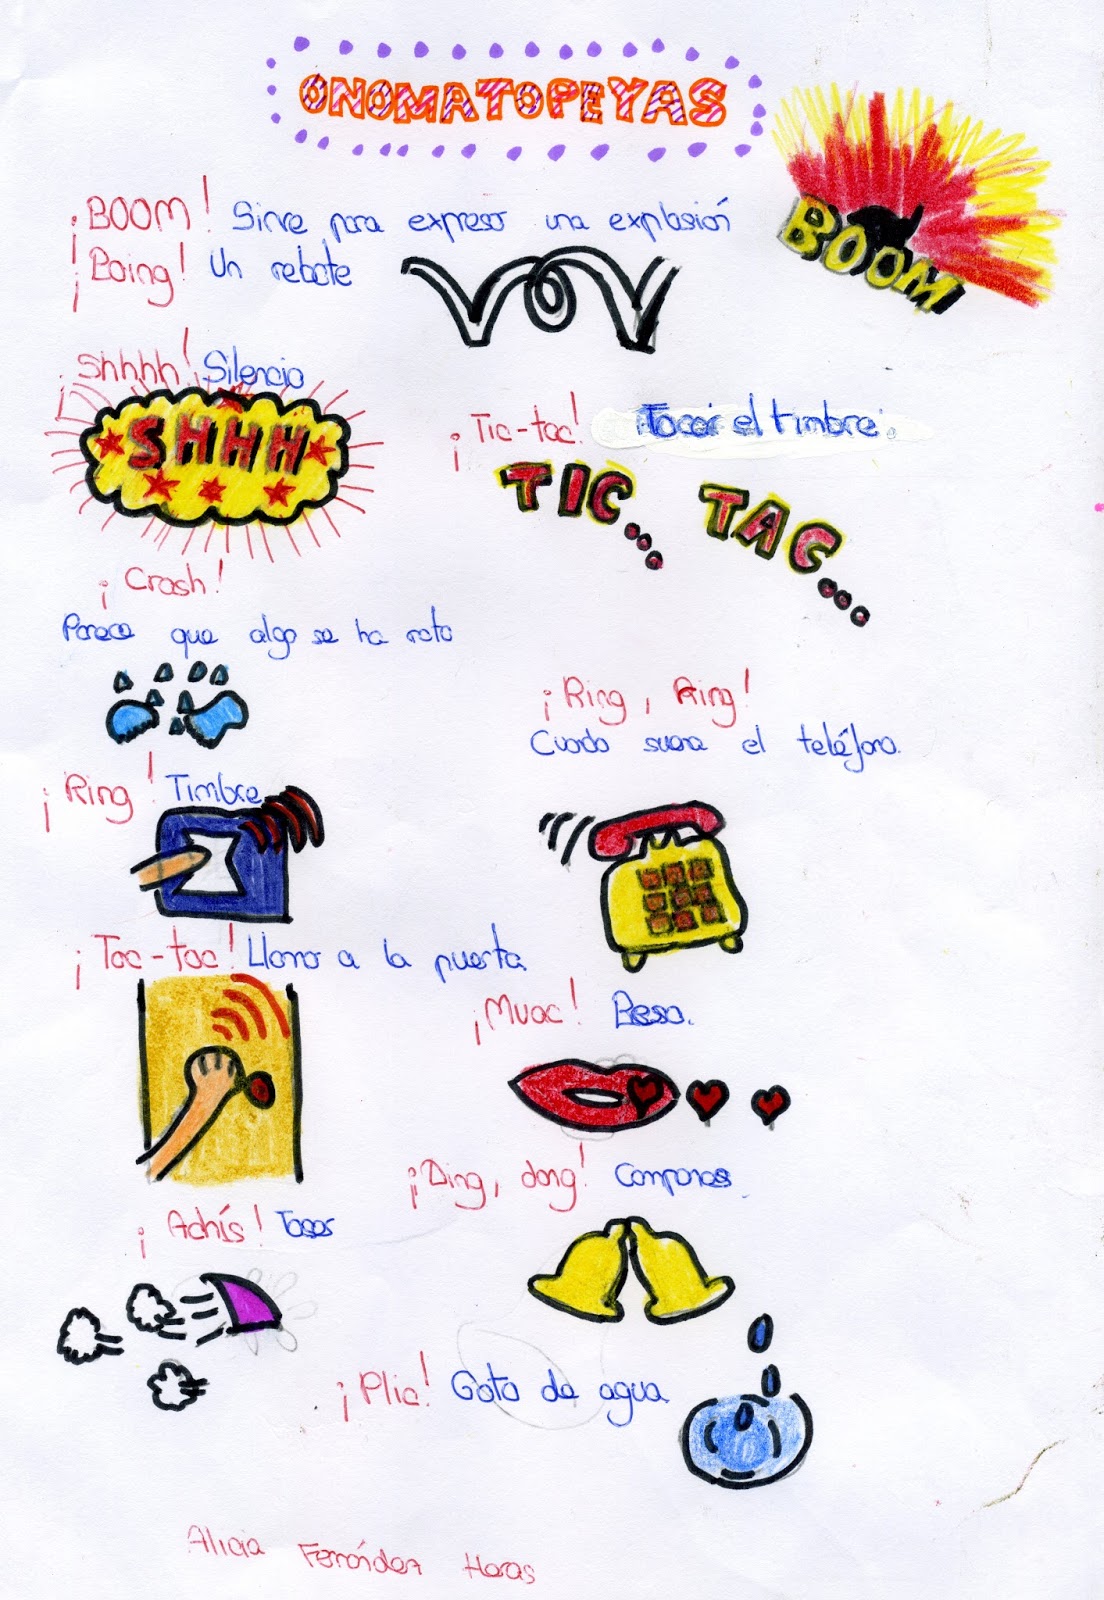 ONOMATOPEYAS
¡BOOM! Sirve para expresar una explosión
BOOM
¡Boing! Un rebote
¡Shhhh! Silencio
SHHH
¡Tic-tac! Tocar el timbre.
TIC... TAC...
¡Crash!
Parece que algo se ha roto
¡Ring, Ring!
Cuando suena el teléfono.
¡Ring! Timbre
¡Toc-toc! Llamar a la puerta
¡Muac! Beso.
¡Ding, dong! Campanas.
¡Achís! Toser
¡Plic! Gota de agua
Alicia Fernández Heras